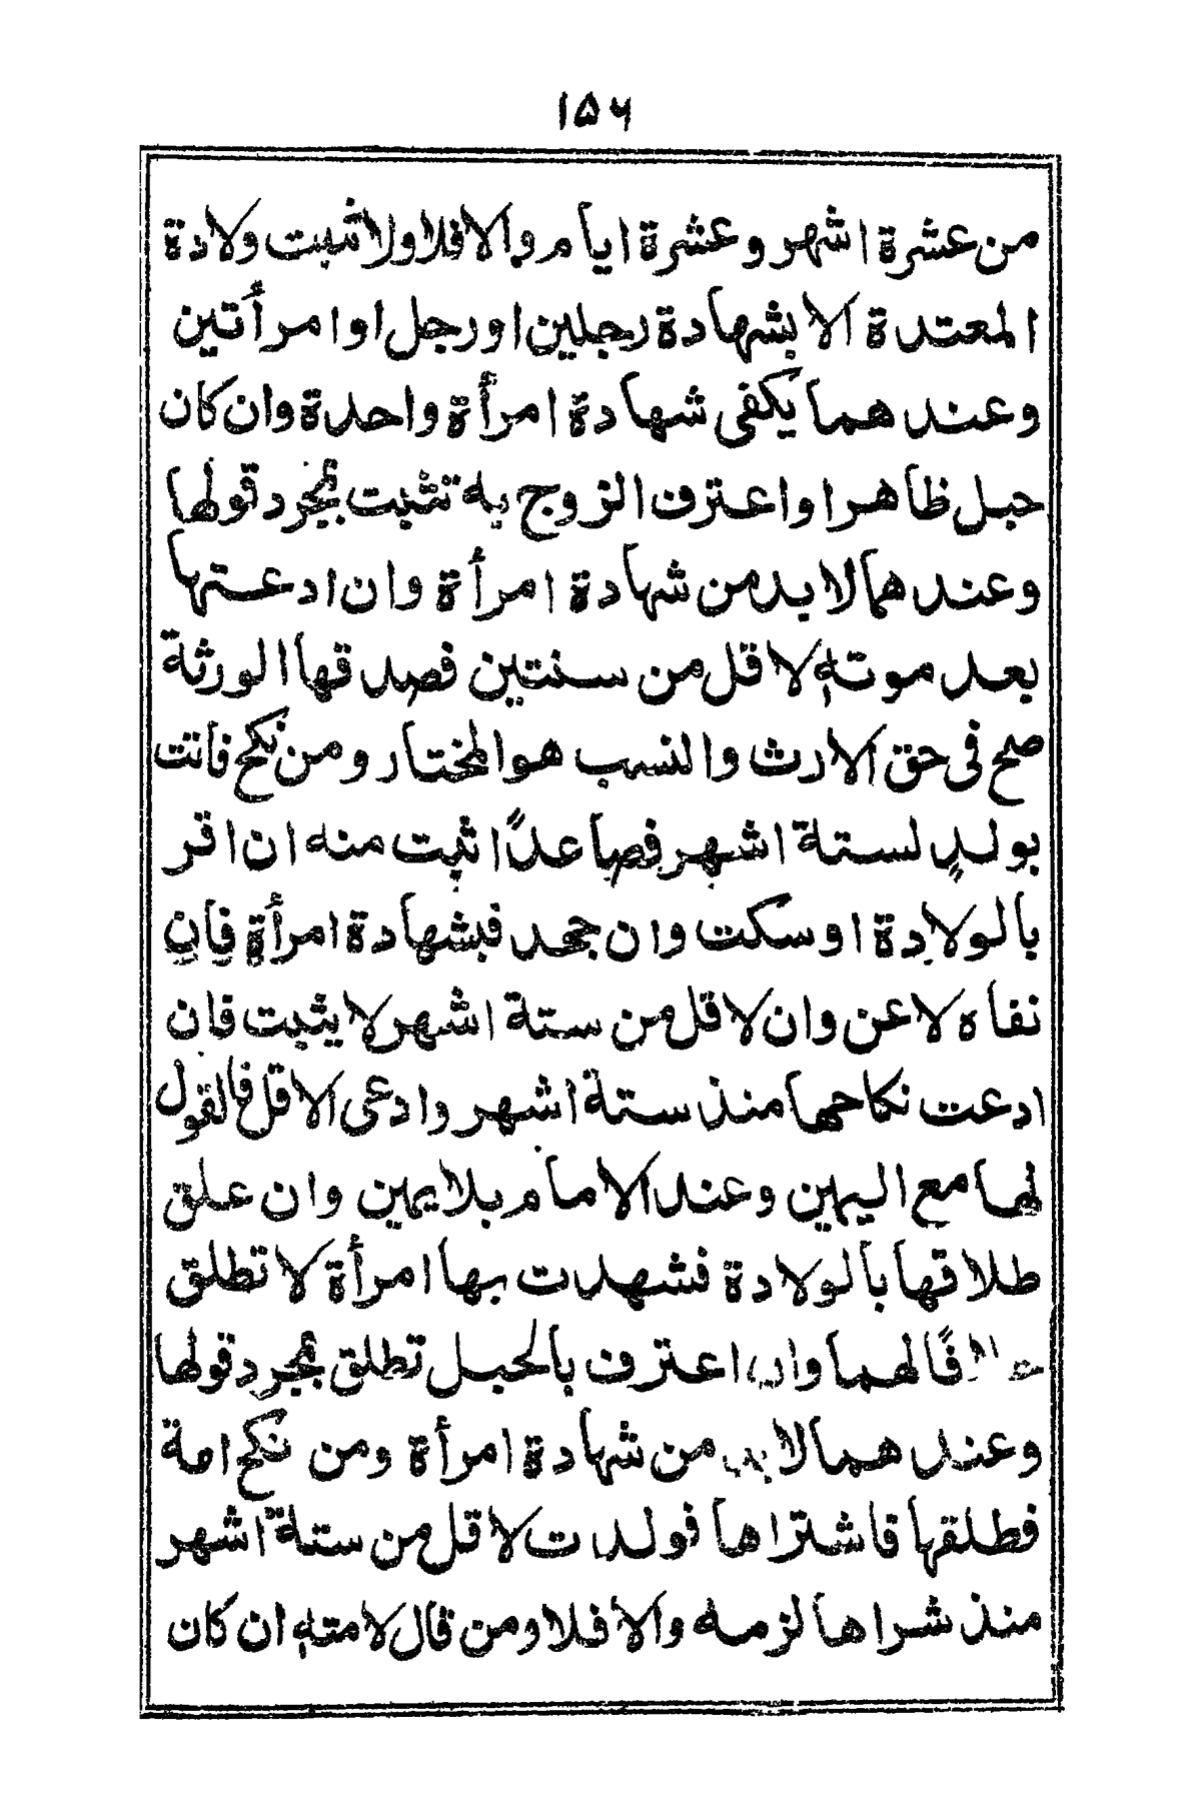 ۱۵۶
من عشرة اشهر وعشرة ايام والا فلا ولا تثبت ولادة
المعتدة الا بشهادة رجلين او رجل اوامرأتين
وعند هما يكفى شهادة امرأة واحدة وان كان
حبل ظاهرا واعترف الزوج به تثبت بمجرد قولها
وعند هما لا بد من شهادة امرأة وان ادعتها
بعد موته لاقل من سنتين فصدقها الورثة
صح فى حق الارث والنسب هو المختار ومن نكح فاتت
بولدٍ لستة اشهر فصاعدًا ثبت منه ان اقر
بالولادة او سكت وان جحد فبشهادة امرأة فان
نفاه لاعن وان لاقل من ستة اشهر لا يثبت فان
ادعت نكاحها منذ ستة اشهر وادعى الاقل فالقول
لها مع اليمين وعند الامام بلا يمين وان علق
طلاقها بالولادة فشهدت بها امرأة لا تطلق
خلافًا لهما وان اعترف بالحبل تطلق بمجرد قولها
وعند هما لا بد من شهادة امرأة ومن نكح امة
فطلقها فاشتراها فولدت لاقل من ستة اشهر
منذ شراها لزمه والا فلا ومن قال لامته ان كان